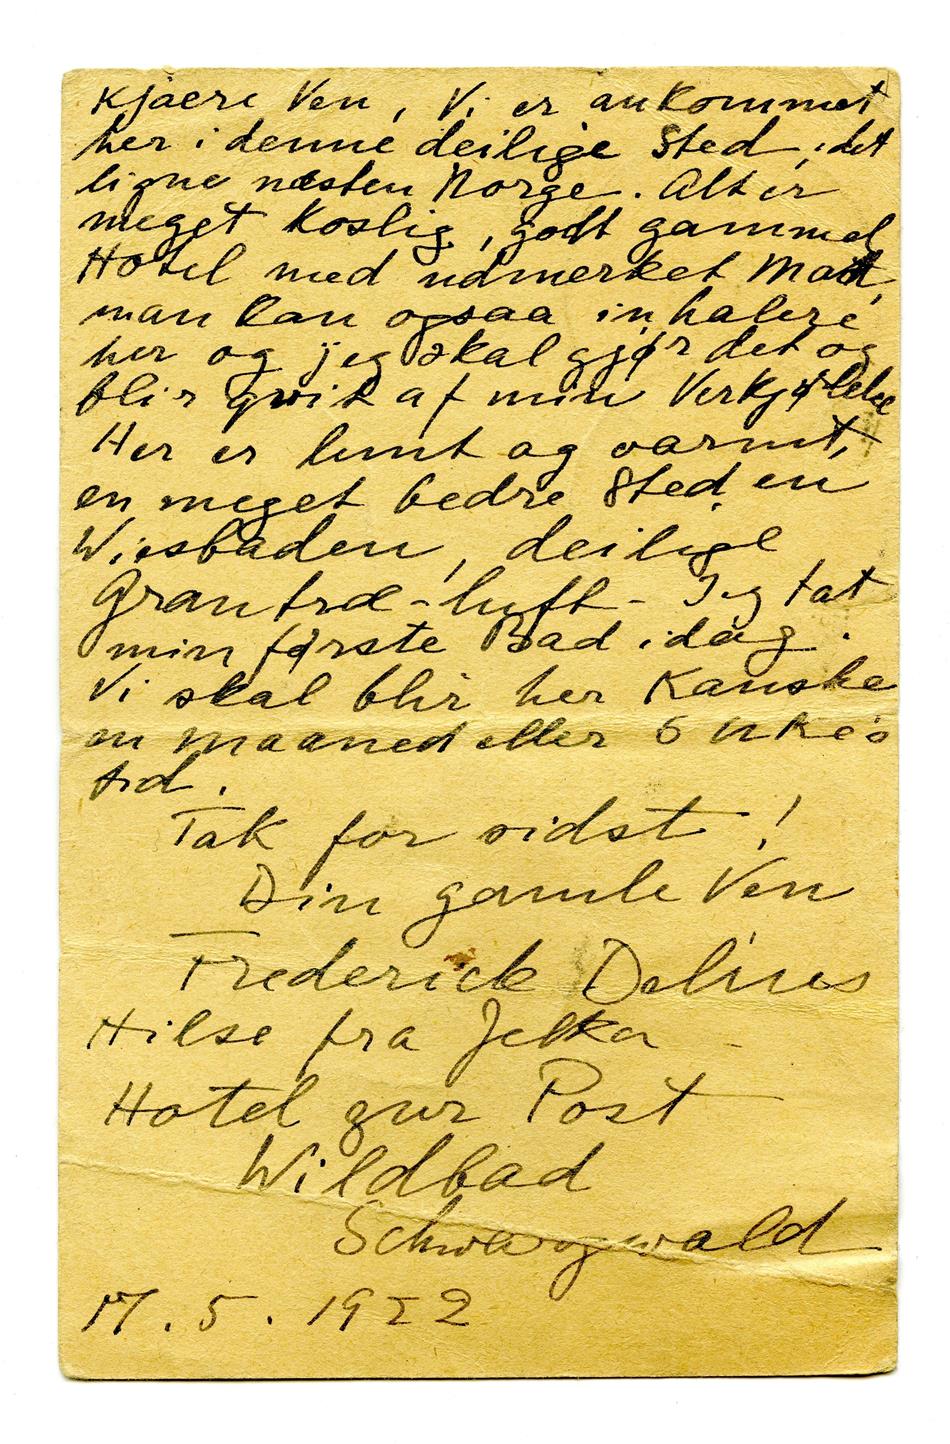 Kjaere Ven, Vi er ankommet
her i denne deilige Sted, det
ligne næsten Norge. Alt er
meget koslig, godt gammel
Hotel med udmerket Mad,
man kan ogsaa inhalere
her og jeg skal gjør det og
blir qvik af min Verkjølelse
Her er lunt og varmt,
en meget bedre Sted en
Wiesbaden, deilige
Grantræ-luft - Jeg tat
min første Bad idag.
Vi skal blir her Kanske
en maaned eller 5 Ukes
tid.
Tak for sidst!
Din gamle Ven
Frederick Delius
Hilse fra Jelka -
Hotel zur Post
Wildbad
Schwarzwald
17.5.1922